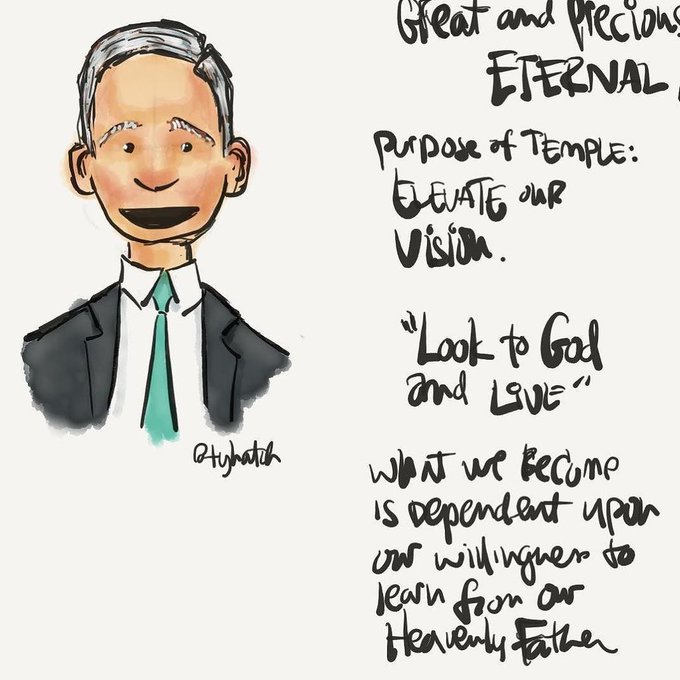 Great and Precious
ETERNAL
Purpose of TEMPLE:
ELEVATE OUR
Vision.
"Look to God
and LIVE"
WHAT WE BECOME
is Dependent upon
our willingness to
learn from our
Heavenly Father
@tyhatch